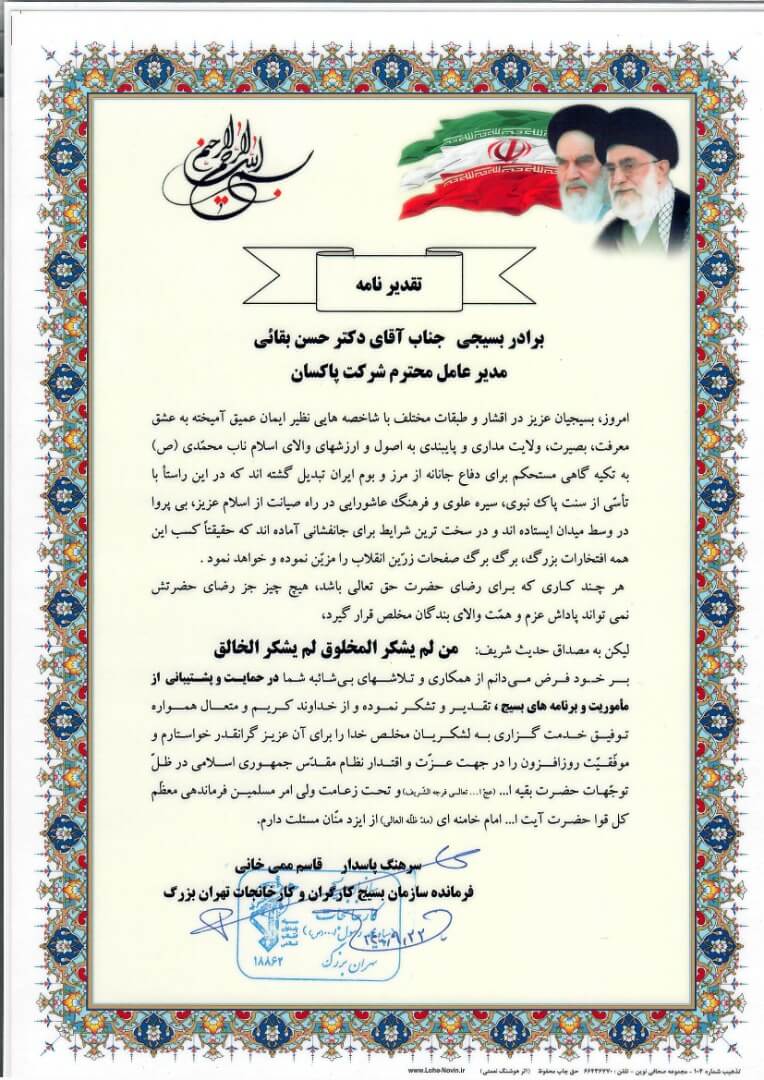 بسم الله الرحمن الرحیم
تقدیر نامه
برادر بسیجی جناب آقای دکتر حسن بقائی
مدیر عامل محترم شرکت پاکسان
امروز، بسیجیان عزیز در اقشار و طبقات مختلف با شاخصه هایی نظیر ایمان عمیق آمیخته به عشق
معرفت، بصیرت، ولایت مداری و پایبندی به اصول و ارزشهای والای اسلام ناب محمّدی (ص)
به تکیه گاهی مستحکم برای دفاع جانانه از مرز و بوم ایران تبدیل گشته اند که در این راستأ با
تأسّی از سنت پاک نبوی، سیره علوی و فرهنگ عاشورایی در راه صیانت از اسلام عزیز، بی پروا
در وسط میدان ایستاده اند و در سخت ترین شرایط برای جانفشانی آماده اند که حقیقتاً کسب این
همه افتخارات بزرگ، برگ برگ صفحات زرّین انقلاب را مزیّن نموده و خواهد نمود .
هر چند کاری که برای رضای حضرت حق تعالی باشد، هیچ چیز جز رضای حضرتش
نمی تواند پاداش عزم و همّت والای بندگان مخلص قرار گیرد،
لیکن به مصداق حدیث شریف: من لم یشکر المخلوق لم یشکر الخالق
بر خود فرض می‌دانم از همکاری و تلاشهای بی‌شائبه شما در حمایت و پشتیبانی از
مأموریت و برنامه های بسیج ، تقدیر و تشکر نموده و از خداوند کریم و متعال همواره
توفیق خدمت گزاری به لشکریان مخلص خدا را برای آن عزیز گرانقدر خواستارم و
موفّقیّت روزافزون را در جهت عزّت و اقتدار نظام مقدّس جمهوری اسلامی در ظلّ
توجّهات حضرت بقیه ا... (عج ا... تعالی فرجه الشّریف) و تحت زعامت ولی امر مسلمین فرماندهی معظّم
کل قوا حضرت آیت ا... امام خامنه ای (مدّ ظلّه العالی) از ایزد منّان مسئلت دارم.
سرهنگ پاسدار قاسم ممی خانی
فرمانده سازمان بسیج کارگران و کارخانجات تهران بزرگ
کارخانجات
تهران بزرگ
۱۸۸۶۲
تذهیب شماره ۱۰۴ - مجموعه صحافی نوین - تلفن: ۶۶۴۴۶۲۷۰ حق چاپ محفوظ (اثر هوشنگ نعمتی) www.Loha-Novin.ir